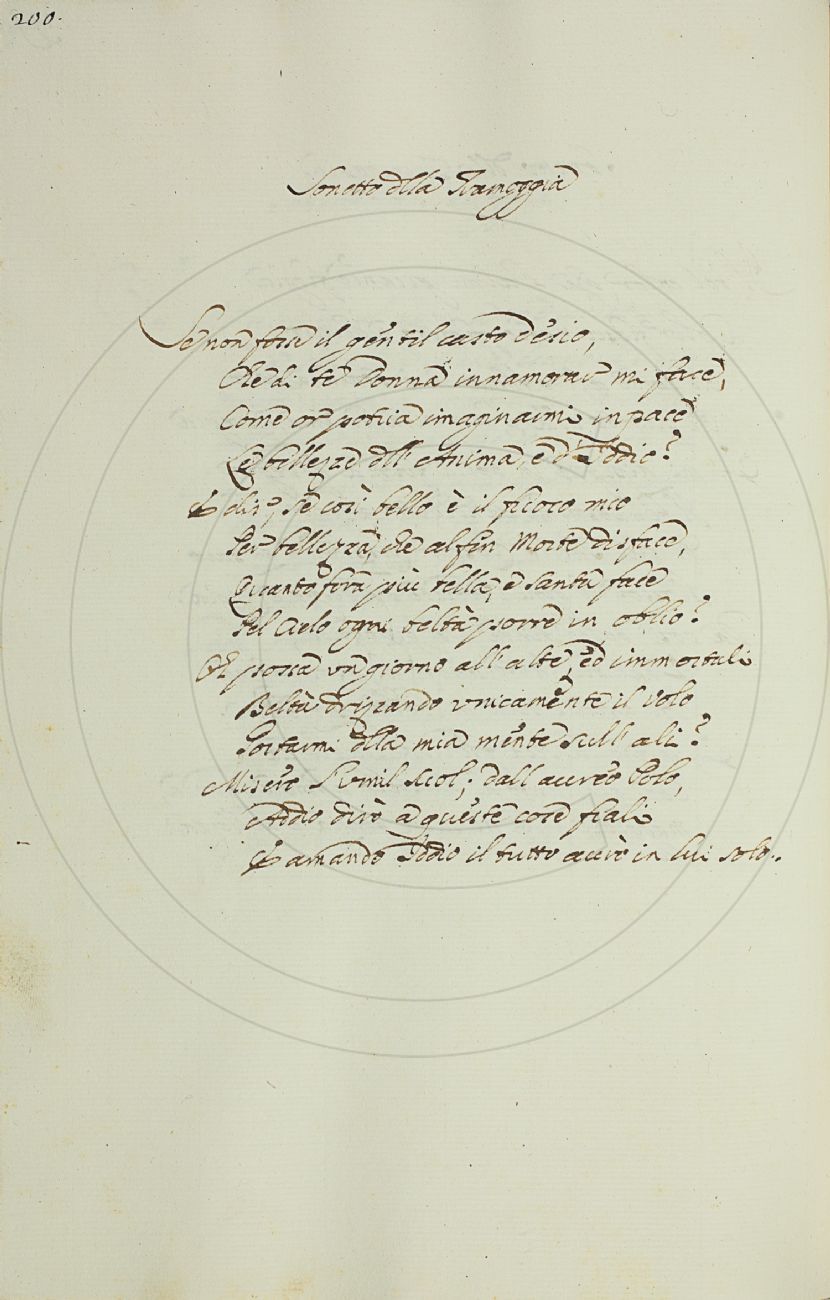 200.
Sonetto della Rameggia
Se non fosse il gentil casto desio,
Che di te Donna innamorar mi face,
Come or potria imaginarmi in pace
Le bellezze dell' Anima, e d' Iddio?
E dir, se così bello è il
Per bellezza, che alfin Morte disface,
Quanto fora più bella, e santa face
Pel Cielo ogni beltà porre in oblio?
possa un giorno all' alte, ed immortali
Beltà drizzando unicamente il volo
Portarmi della mia mente sull' ali?
Misero Umil dall' aureo Polo,
Addio dirò a queste cose frali
E amando Iddio il tutto avrò in lui solo.